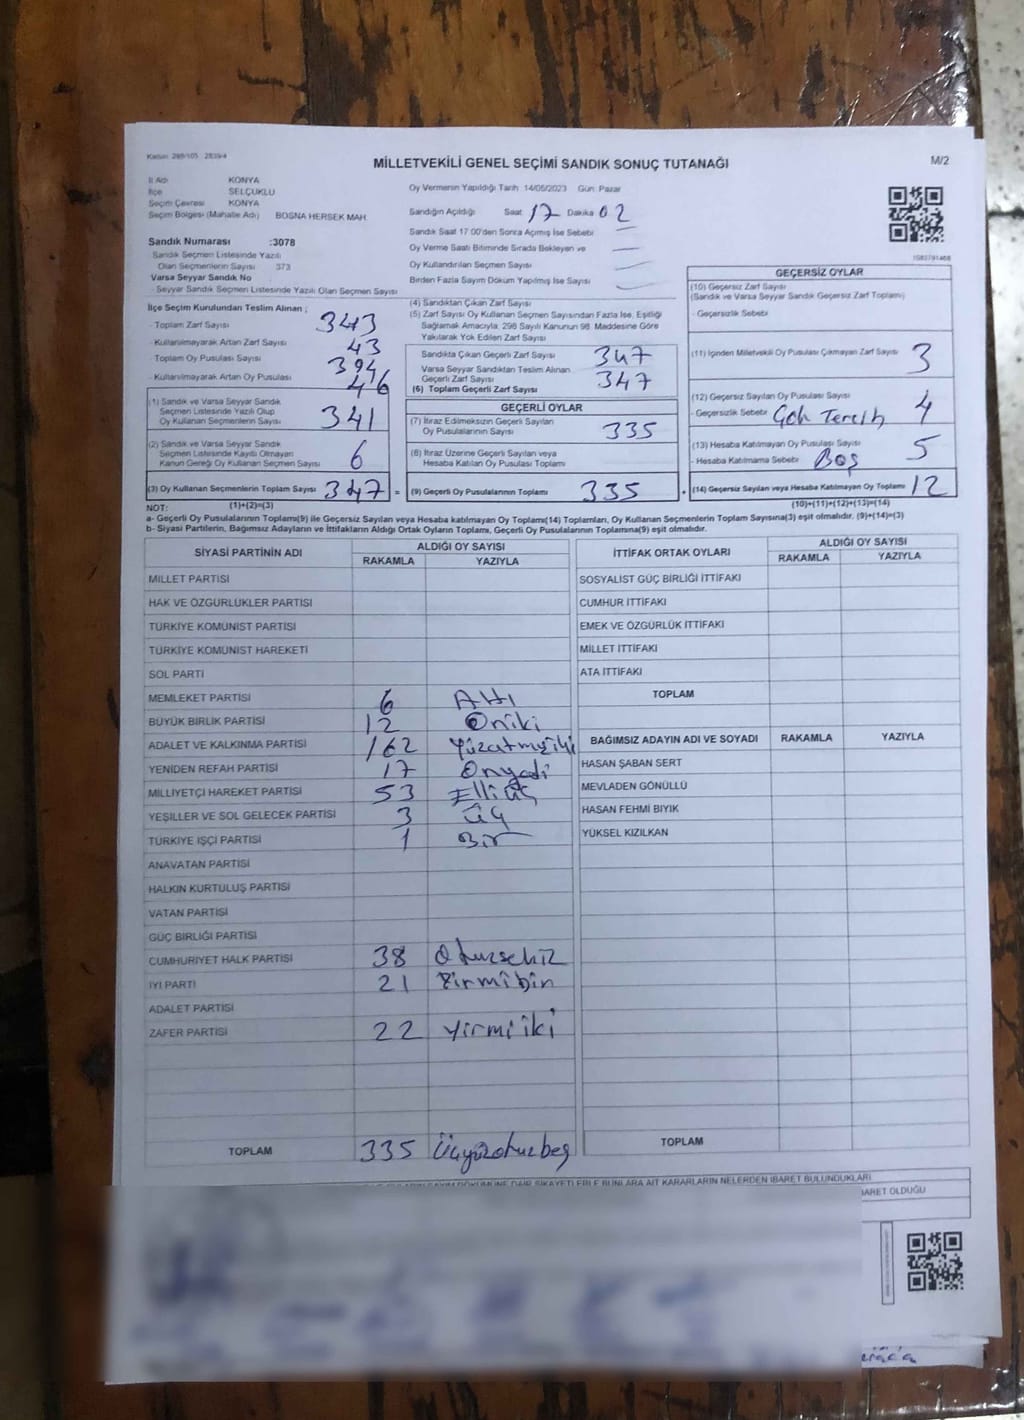 Kanun: 298/105 2839/4
MİLLETVEKİLİ GENEL SEÇİMİ SANDIK SONUÇ TUTANAĞI
M/2
İl Adı KONYA
İlçe SELÇUKLU
Seçim Çevresi KONYA
Seçim Bölgesi (Mahalle Adı) BOSNA HERSEK MAH.
Sandık Numarası :3078
Sandık Seçmen Listesinde Yazılı
Olan Seçmenlerin Sayısı 373
Varsa Seyyar Sandık No
- Seyyar Sandık Seçmen Listesinde Yazılı Olan Seçmen Sayısı
Oy Vermenin Yapıldığı Tarih 14/05/2023 Gün: Pazar
Sandığın Açıldığı Saat 17 Dakika 02
Sandık Saat 17.00'den Sonra Açılmış İse Sebebi
Oy Verme Saati Bitiminde Sırada Bekleyen ve
Oy Kullandırılan Seçmen Sayısı
Birden Fazla Sayım Döküm Yapılmış İse Sayısı
İlçe Seçim Kurulundan Teslim Alınan ;
- Toplam Zarf Sayısı 343
- Kullanılmayarak Artan Zarf Sayısı 43
- Toplam Oy Pusulası Sayısı 394
- Kullanılmayarak Artan Oy Pusulası 46
(1) Sandık ve Varsa Seyyar Sandık
Seçmen Listesinde Yazılı Olup
Oy Kullanan Seçmenlerin Sayısı 341
(2) Sandık ve Varsa Seyyar Sandık
Seçmen Listesinde Kayıtlı Olmayan
Kanun Gereği Oy Kullanan Seçmen Sayısı 6
(3) Oy Kullanan Seçmenlerin Toplam Sayısı 347 =
(1)+(2)=(3)
(4) Sandıktan Çıkan Zarf Sayısı
(5) Zarf Sayısı Oy Kullanan Seçmen Sayısından Fazla İse, Eşitliği
Sağlamak Amacıyla, 298 Sayılı Kanunun 98. Maddesine Göre
Yakılarak Yok Edilen Zarf Sayısı
Sandıkta Çıkan Geçerli Zarf Sayısı 347
Varsa Seyyar Sandıktan Teslim Alınan
Geçerli Zarf Sayısı 347
(6) Toplam Geçerli Zarf Sayısı
GEÇERLİ OYLAR
(7) İtiraz Edilmeksizin Geçerli Sayılan
Oy Pusulalarının Sayısı 335
(8) İtiraz Üzerine Geçerli Sayılan veya
Hesaba Katılan Oy Pusulası Toplamı
(9) Geçerli Oy Pusulalarının Toplamı 335 +
GEÇERSİZ OYLAR
(10) Geçersiz Zarf Sayısı
(Sandık ve Varsa Seyyar Sandık Geçersiz Zarf Toplamı)
- Geçersizlik Sebebi
(11) İçinden Milletvekili Oy Pusulası Çıkmayan Zarf Sayısı 3
(12) Geçersiz Sayılan Oy Pusulası Sayısı 4
- Geçersizlik Sebebi Çok Tercih
(13) Hesaba Katılmayan Oy Pusulası Sayısı 5
- Hesaba Katılmama Sebebi Boş
(14) Geçersiz Sayılan veya Hesaba Katılmayan Oy Toplamı 12
(10)+(11)+(12)+(13)=(14)
NOT:
a- Geçerli Oy Pusulalarının Toplamı(9) ile Geçersiz Sayılan veya Hesaba katılmayan Oy Toplamı(14) Toplamları, Oy Kullanan Seçmenlerin Toplam Sayısına(3) eşit olmalıdır. (9)+(14)=(3)
b- Siyasi Partilerin, Bağımsız Adayların ve İttifakların Aldığı Ortak Oyların Toplamı, Geçerli Oy Pusulalarının Toplamına(9) eşit olmalıdır.
SİYASİ PARTİNİN ADI ALDIĞI OY SAYISI
RAKAMLA YAZIYLA
MİLLET PARTİSİ
HAK VE ÖZGÜRLÜKLER PARTİSİ
TÜRKİYE KOMÜNİST PARTİSİ
TÜRKİYE KOMÜNİST HAREKETİ
SOL PARTİ
MEMLEKET PARTİSİ 6 Altı
BÜYÜK BİRLİK PARTİSİ 12 Oniki
ADALET VE KALKINMA PARTİSİ 162 Yüzatmışiki
YENİDEN REFAH PARTİSİ 17 Onyedi
MİLLİYETÇİ HAREKET PARTİSİ 53 Elliüç
YEŞİLLER VE SOL GELECEK PARTİSİ 3 Üç
TÜRKİYE İŞÇİ PARTİSİ 1 Bir
ANAVATAN PARTİSİ
HALKIN KURTULUŞ PARTİSİ
VATAN PARTİSİ
GÜÇ BİRLİĞİ PARTİSİ
CUMHURİYET HALK PARTİSİ 38 Otuzsekiz
İYİ PARTİ 21 Yirmibin
ADALET PARTİSİ
ZAFER PARTİSİ 22 Yirmiiki
TOPLAM 335 Üçyüzotuzbeş
İTTİFAK ORTAK OYLARI ALDIĞI OY SAYISI
RAKAMLA YAZIYLA
SOSYALİST GÜÇ BİRLİĞİ İTTİFAKI
CUMHUR İTTİFAKI
EMEK VE ÖZGÜRLÜK İTTİFAKI
MİLLET İTTİFAKI
ATA İTTİFAKI
TOPLAM
BAĞIMSIZ ADAYIN ADI VE SOYADI RAKAMLA YAZIYLA
HASAN ŞABAN SERT
MEVLADEN GÖNÜLLÜ
HASAN FEHMİ BIYIK
YÜKSEL KIZILKAN
TOPLAM
SAYIM DÖKÜMÜNE DAİR ŞİKAYETLERLE BUNLARA AİT KARARLARIN NELERDEN İBARET BULUNDUKLARI
İBARET OLDUĞU